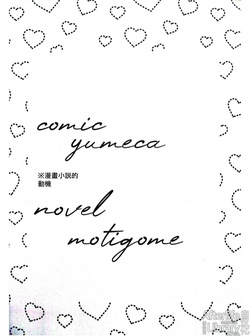 comic
yumeca
※漫畫小說的
動機
novel
motigome